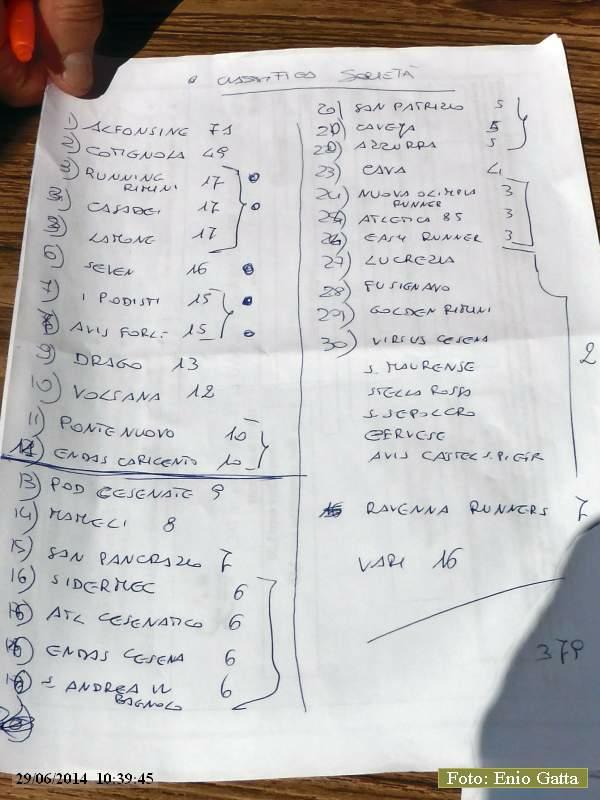 CLASSIFICA SOCIETÀ
1) ALFONSINE 71
2) COTIGNOLA 49
3) RUNNING RIMINI 17
3) CASADEI 17
3) LAMONE 17
6) SEVEN 16
7) I PODISTI 15
AVIS FORLÌ 15
9) DRAGO 13
10) VOLSANA 12
11) PONTENUOVO 10
11) ENDAS CARICENTO 10
13) POD CESENATE 9
14) MAMELI 8
15) SAN PANCRAZIO 7
16) SIDERMEC 6
16) ATL CESENATICO 6
16) ENDAS CESENA 6
16) S. ANDREA IN BAGNOLO 6
20) SAN PATRIZIO 5
20) CAVEJA 5
20) AZZURRA 5
23) CAVA 4
24) NUOVA OLIMPIA RUNNER 3
24) ATLETICA 85 3
24) EASY RUNNER 3
27) LUCREZIA
28) FUSIGNANO
29) GOLDEN RIMINI
30) VIRTUS CESENA
S. MAURENSE
STELLA ROSSA
S. SEPOLCRO
CERVESE
AVIS CASTEL S. PIETR
2
RAVENNA RUNNERS 7
VARI 16
379
29/06/2014 10:39:45
Foto: Enio Gatta